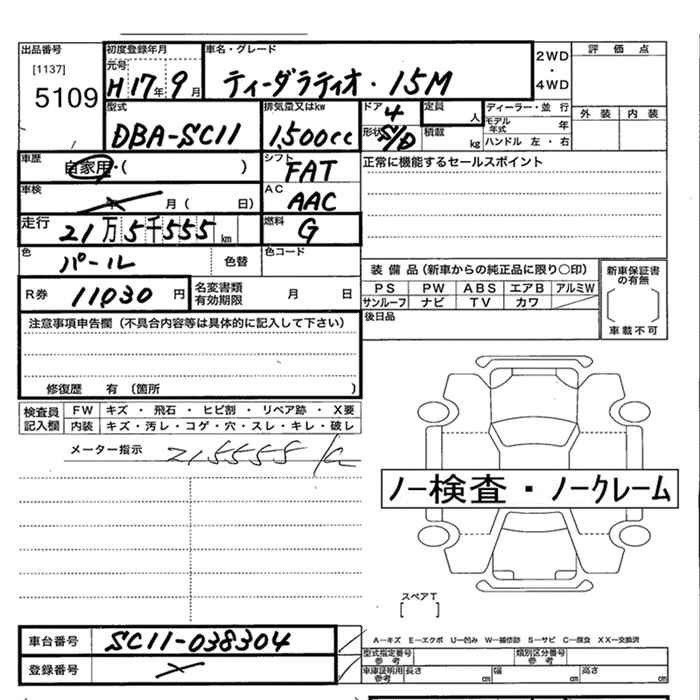 出品番号 初度登録年月 車名・グレード 2WD・4WD 評価点
[1137] 元号 H17年9月 ティーダラティオ・15M
5109
型式 排気量又はkw ドア 4 定員 人 ディーラー・並行 外装 内装
DBA-SC11 1,500cc 形状 S/D 積載 kg モデル年式 年
ハンドル 左・右
車歴 自家用・( ) シフト FAT 正常に機能するセールスポイント
車検 年 月( 日) AC AAC
走行 21万5千555km 燃料 G
色 パール 色替 色コード
装備品(新車からの純正品に限り○印) 新車保証書の有無
R券 11030円 名変書類有効期限 月 日 PS PW ABS エアB アルミW
サンルーフ ナビ TV カワ 車載不可
注意事項申告欄(不具合内容等は具体的に記入して下さい) 後日品
修復歴 有 (箇所 )
検査員記入欄 FW キズ・飛石・ヒビ割・リペア跡・X要
内装 キズ・汚レ・コゲ・穴・スレ・キレ・破レ
メーター指示 215555 k
ノー検査・ノークレーム
スペアT
[ ]
車台番号 SC11-038304 A－キズ E－エクボ U－凹み W－補修跡 S－サビ C－腐食 XX－交換済
登録番号 型式指定番号 参考 類別区分番号 参考
車庫証明用 参考 長さ cm 幅 cm 高さ cm